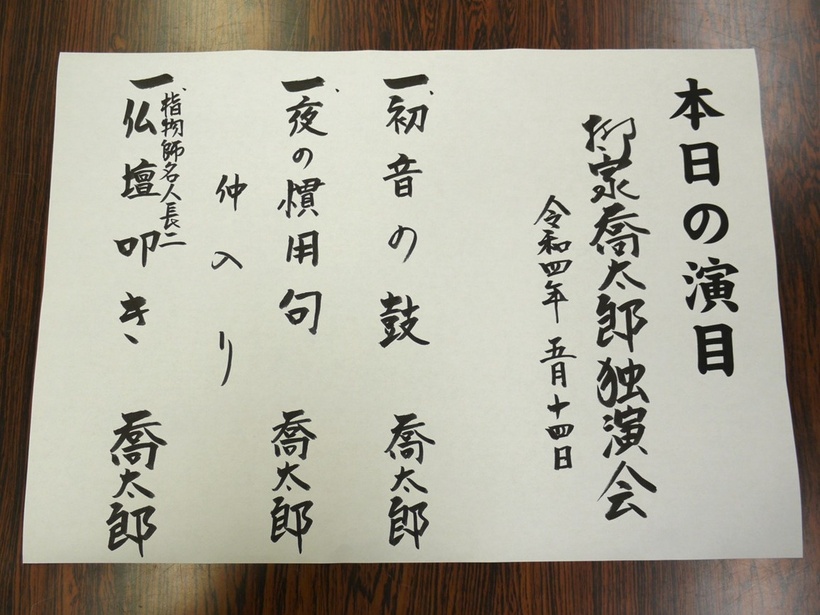 本日の演目
柳家喬太郎独演会
令和四年 五月十四日
一、初音の鼓 喬太郎
一、夜の慣用句 喬太郎
仲入り
指物師名人長二
一、仏壇叩き 喬太郎